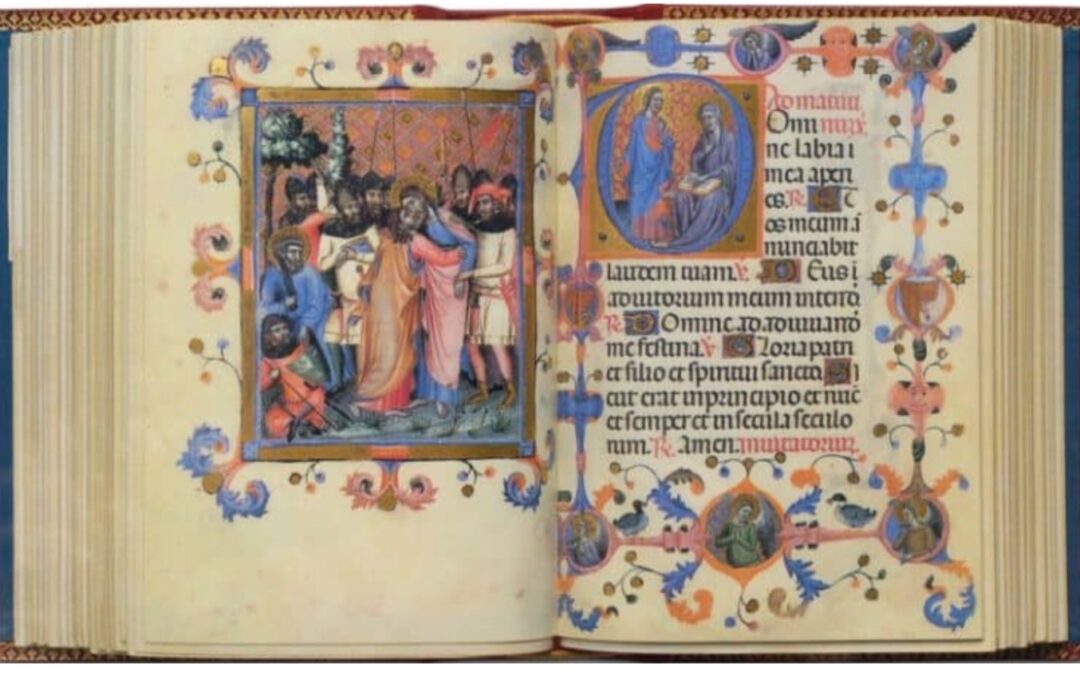 Ad matuti
DOmi
ne labia i
mea aperi
es. ℟. Et
os meum a
nunciabit
laudem tuam. ℣. DEus i
adiutorium meum intende
℟. DOmine ad adiuuandū
me festina. ℣. GLoria patri
et filio et spiritui sancto. Si
cut erat in principio et nūc
et semper et in secula seculo
rum. ℟. Amen. inuitatorium.